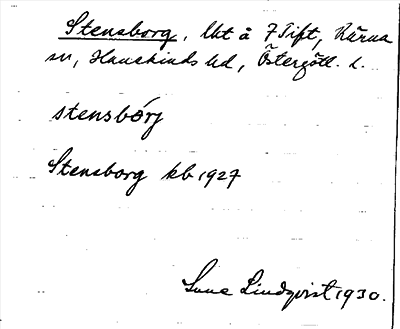 Stensborg, lht å 7 Tift, Kärna
sn, Hanekinds hd, Östergötl. l.
stensbórj
Stensborg kb 1927
Sune Lindqvist 1930.